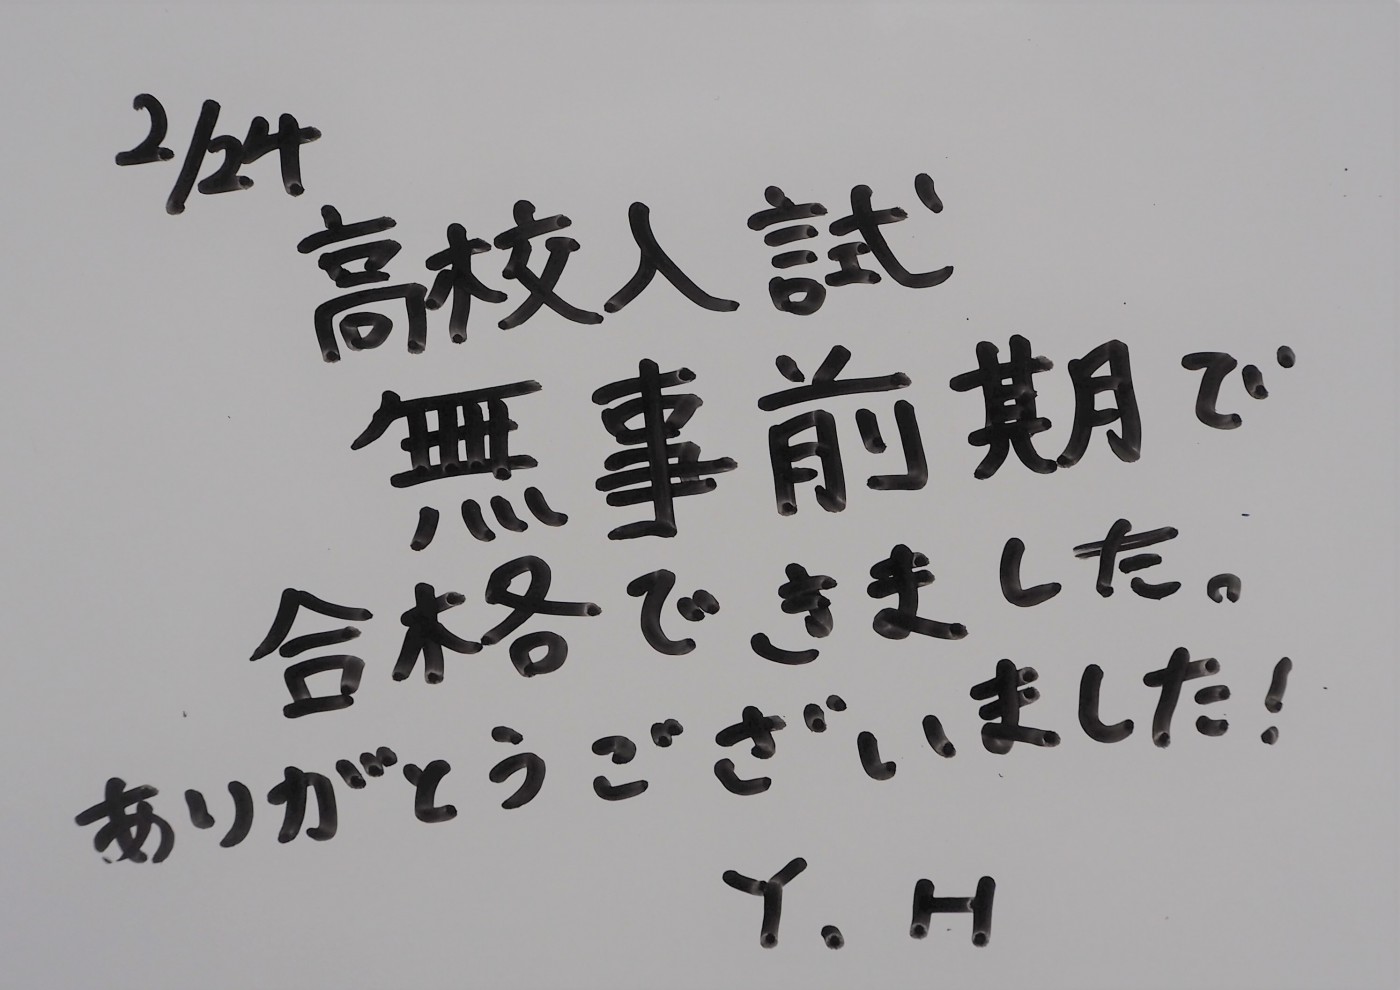 2/24
高校入試
無事前期で
合格できました。
ありがとうございました!
Y.H